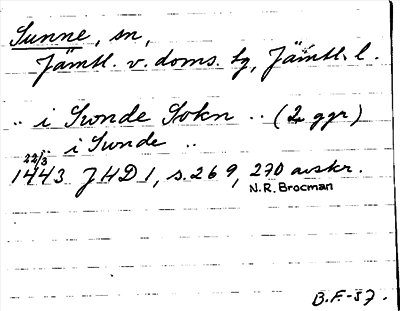 Sunne, sn,
Jämtl. v. doms. sg, Jämtl. l.
.. i Swnde Sokn .. (2 ggr)
.. i Swnde ..
22/3
1443 JHD 1, s. 269, 270 avskr.
N.R. Brocman
B.F.-57.